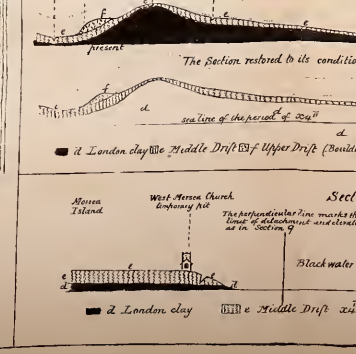 e f e e e
present
The Section restored to its conditio
e f d d
sea line of the period of x4"
d
d London clay e Middle Drift f Upper Drift (Bould
Mersea
Island
West Mersea Church
temporary pit
Sect
The perpendicular line marks th
limit of detachment and elevati
as in Section 9
Blackwater
e e e
d d
d London clay e Middle Drift x4